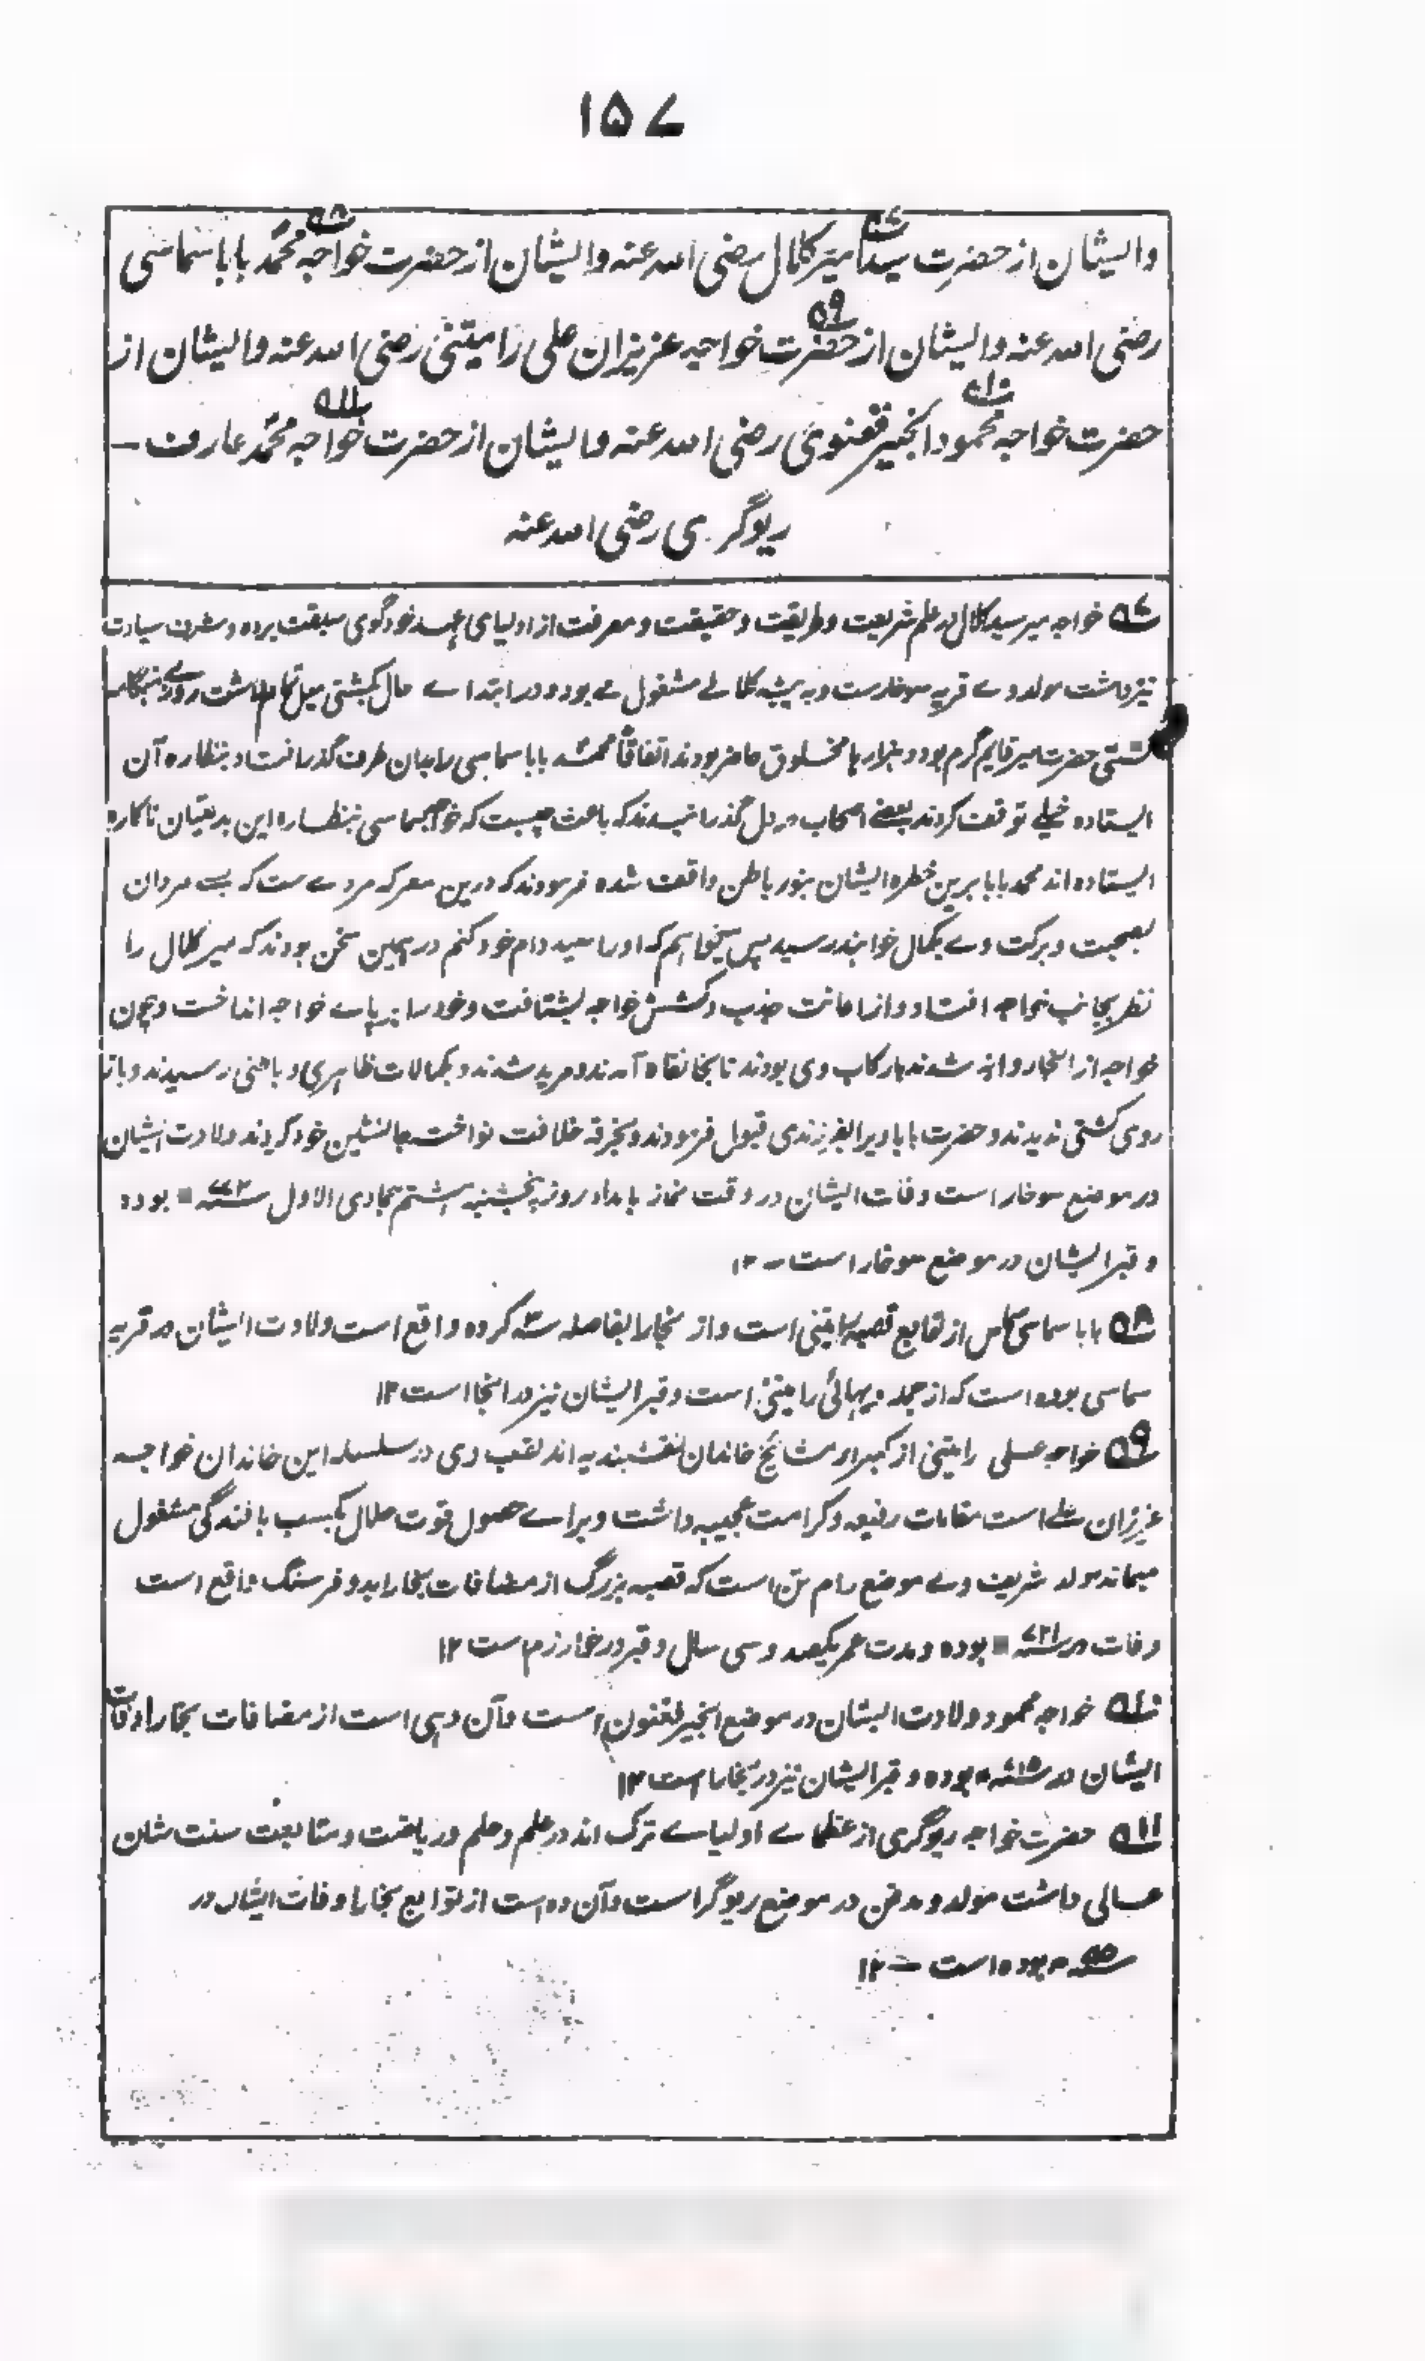 ۱۵۷
وایشان از حضرت سید امیر کلال رضی الله عنه وایشان از حضرت خواجه محمد بابا سماسی
رضی الله عنه وایشان از حضرت خواجه عزیزان علی رامیتنی رضی الله عنه وایشان از
حضرت خواجه محمود انجیر فغنوی رضی الله عنه وایشان از حضرت خواجه محمد عارف –
ریوگری رضی الله عنه
۵۷ خواجه میر سید کلال در علم شریعت و طریقت و حقیقت و معرفت از اولیای عهد خود گوی سبقت برده و شرف سیادت
نیز داشت مولد وے قریه سوخارست و به پیشه کلالے مشغول مے بود و در ابتداے حال بکشتی میل تمام داشت روزے هنگامه
کشتی حضرت میر قایم گرم بود و هزارها مخلوق حاضر بودند اتفاقاً محمد بابا سماسی را بدان طرف گذر افتاد و بنظاره آن
ایستاده خیلے توقف کردند بعضے اصحاب در دل گذرانیدند که باعث چیست که خواجه سماسی بنظاره این بدعتیان ناکاره
ایستاده اند محمد بابا برین خطره ایشان بنور باطن واقف شده فرمودند که درین معرکه مردے ست که بسے مردان
بصحبت و برکت وے بکمال خواهند رسید پس میخواهم که او را صید دام خود کنم در همین سخن بودند که میر کلال را
نظر بجانب خواجه افتاد و از جذب و کشش خواجه بشتافت و خود را بر پاے خواجه انداخت و چون
خواجه از انجا روانه شدند در رکاب وی بودند تا بخانقاه آمدند و مرید شدند و بکمالات ظاهری و باطنی رسیدند و باز
روی کشتی ندیدند و حضرت بابا ویرا بفرزندی قبول فرمودند و بخرقه خلافت نواخت جانشین خود کردند ولادت ایشان
در موضع سوخار است وفات ایشان در وقت نماز بامداد روز پنجشنبه هشتم جمادی الاول سنه ۷۷۲ بوده
و قبر ایشان در موضع سوخار است – ۱۲
۵۸ بابا سماسی از توابع قصبه رامیتنی است و از بخارا بفاصله سه کروه واقع است ولادت ایشان در قریه
سماسی بوده است که از جمله دیهائی رامیتنی است و قبر ایشان نیز در انجا است ۱۲
۵۹ خواجه علی رامیتنی از کبراء مشائخ خاندان نقشبندیه اند لقب وی در سلسله این خاندان خواجه
عزیزان علے است مقامات رفیعه و کرامت عجیبه داشت و براے حصول قوت حلال بکسب بافندگی مشغول
میماند مولد شریف وے موضع رام تن است که قصبه بزرگ از مضافات بخارا بدو فرسنگ واقع است
وفات در سنه ۷۲۱ بوده و مدت عمر یکصد و سی سال و قبر در خوارزم است ۱۲
۵۱۰ خواجه محمود ولادت ایشان در موضع انجیر فغنون است و آن دهی است از مضافات بخارا وفات
ایشان در سنه بوده و قبر ایشان نیز در بخارا است ۱۲
۵۱۱ حضرت خواجه ریوگری از عظماے اولیاے ترک اند در علم و حلم و ریاضت و متابعت سنت شان
عالی داشت مولد و مدفن در موضع ریوگر است و آن ده است از توابع بخارا وفات ایشان در
سنه بوده است – ۱۲